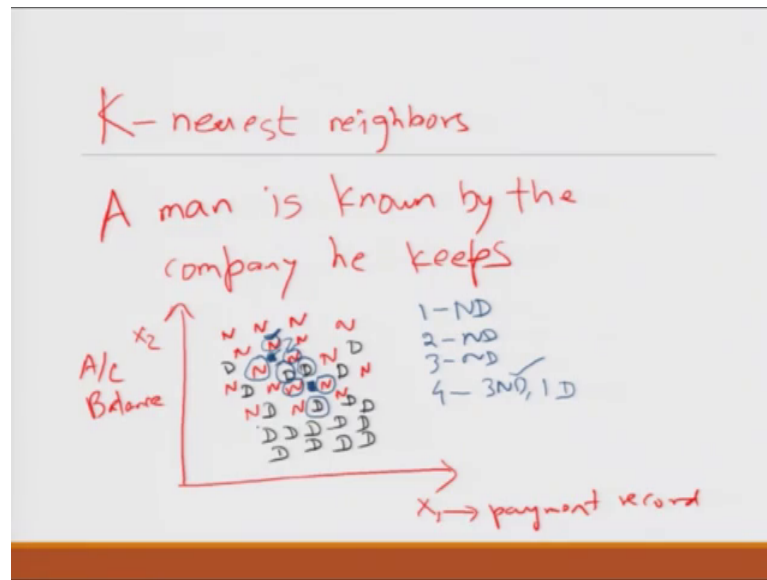 K- nearest neighbors
A man is known by the
company he keeps
x2
A/c
Balance
N N N N
N N N N D
D N D D D N
N D N N N N
N D N D D D
D D D D D
D D D D
1-ND
2-ND
3-ND
4- 3ND, 1D
x1 → payment record